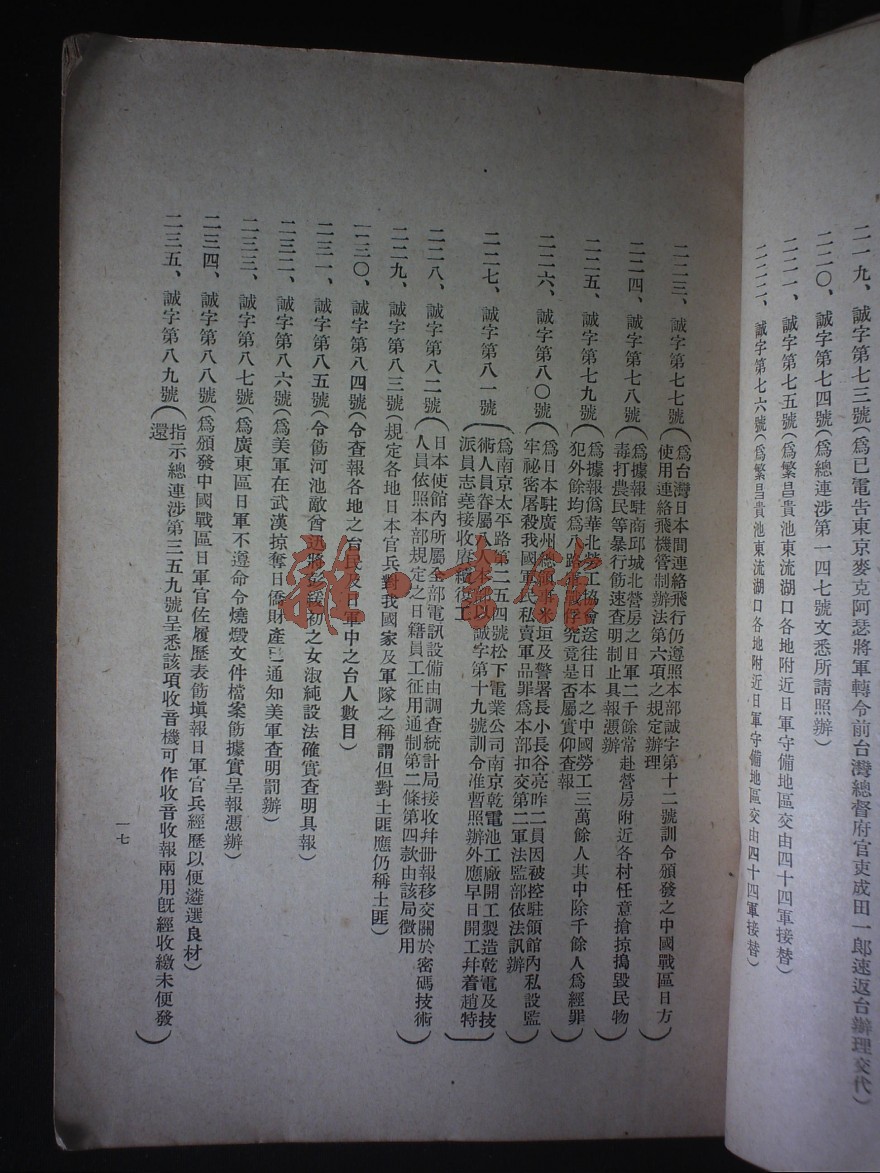 二一九、誠字第七三號(爲已電告東京麥克阿瑟將軍轉令前台灣總督府官吏成田一郎速返台辦理交代)
二二〇、誠字第七四號(爲總連涉第一四七號文悉所請照辦)
二二一、誠字第七五號(爲繁昌貴池東流湖口各地附近日軍守備地區交由四十四軍接替)
二二二、誠字第七六號(爲繁昌貴池東流湖口各地附近日軍守備地區交由四十四軍接替)
二二三、誠字第七七號(爲台灣日本間連絡飛行仍遵照本部誠字第十二號訓令頒發之中國戰區日方
使用連絡飛機管制辦法第六項之規定辦理)
二二四、誠字第七八號(爲據報駐商邱城北營房之日軍二千餘常赴營房附近各村任意搶掠搗毀民物
毒打農民等暴行飭速查明制止具報憑辦)
二二五、誠字第七九號(爲據報僞華北勞工協會送往日本之中國勞工三萬餘人其中除千餘人爲經罪
犯外餘均爲八路軍戰俘究竟是否屬實仰查報)
二二六、誠字第八〇號(爲日本駐廣州總領事米垣及警署長小長谷亮昨二員因被控駐領館內私設監
牢祕密屠殺我國軍民私賣軍品罪爲本部扣交第二軍法監部依法訊辦)
二二七、誠字第八一號(爲南京太平路第二五四號松下電業公司南京乾電池工廠開工製造乾電及技
術人員眷屬八人本部以誠字第十九號訓令准暫照辦外應早日開工幷着趙特
派員志堯接收繼續復工)
二二八、誠字第八二號(日本使館內所屬全部電訊設備由調查統計局接收幷册報移交關於密碼技術
人員依照本部規定之日籍員工征用通制第二條第四款由該局徵用)
二二九、誠字第八三號(規定各地日本官兵對我國家及軍隊之稱謂但對土匪應仍稱土匪)
二三〇、誠字第八四號(令查報各地之台民及日軍中之台人數目)
二三一、誠字第八五號(令飭河池敵酋迅將彭緩初之女淑純設法確實查明具報)
二三二、誠字第八六號(爲美軍在武漢掠奪日僑財產已通知美軍查明罰辦)
二三三、誠字第八七號(爲廣東區日軍不遵命令燒燬文件檔案飭據實呈報憑辦)
二三四、誠字第八八號(爲頒發中國戰區日軍官佐履歷表飭塡報日軍官兵經歷以便遴選良材)
二三五、誠字第八九號(指示總連涉第三五九號呈悉該項收音機可作收音收報兩用旣經收繳未便發
還)
一七
雜·書館